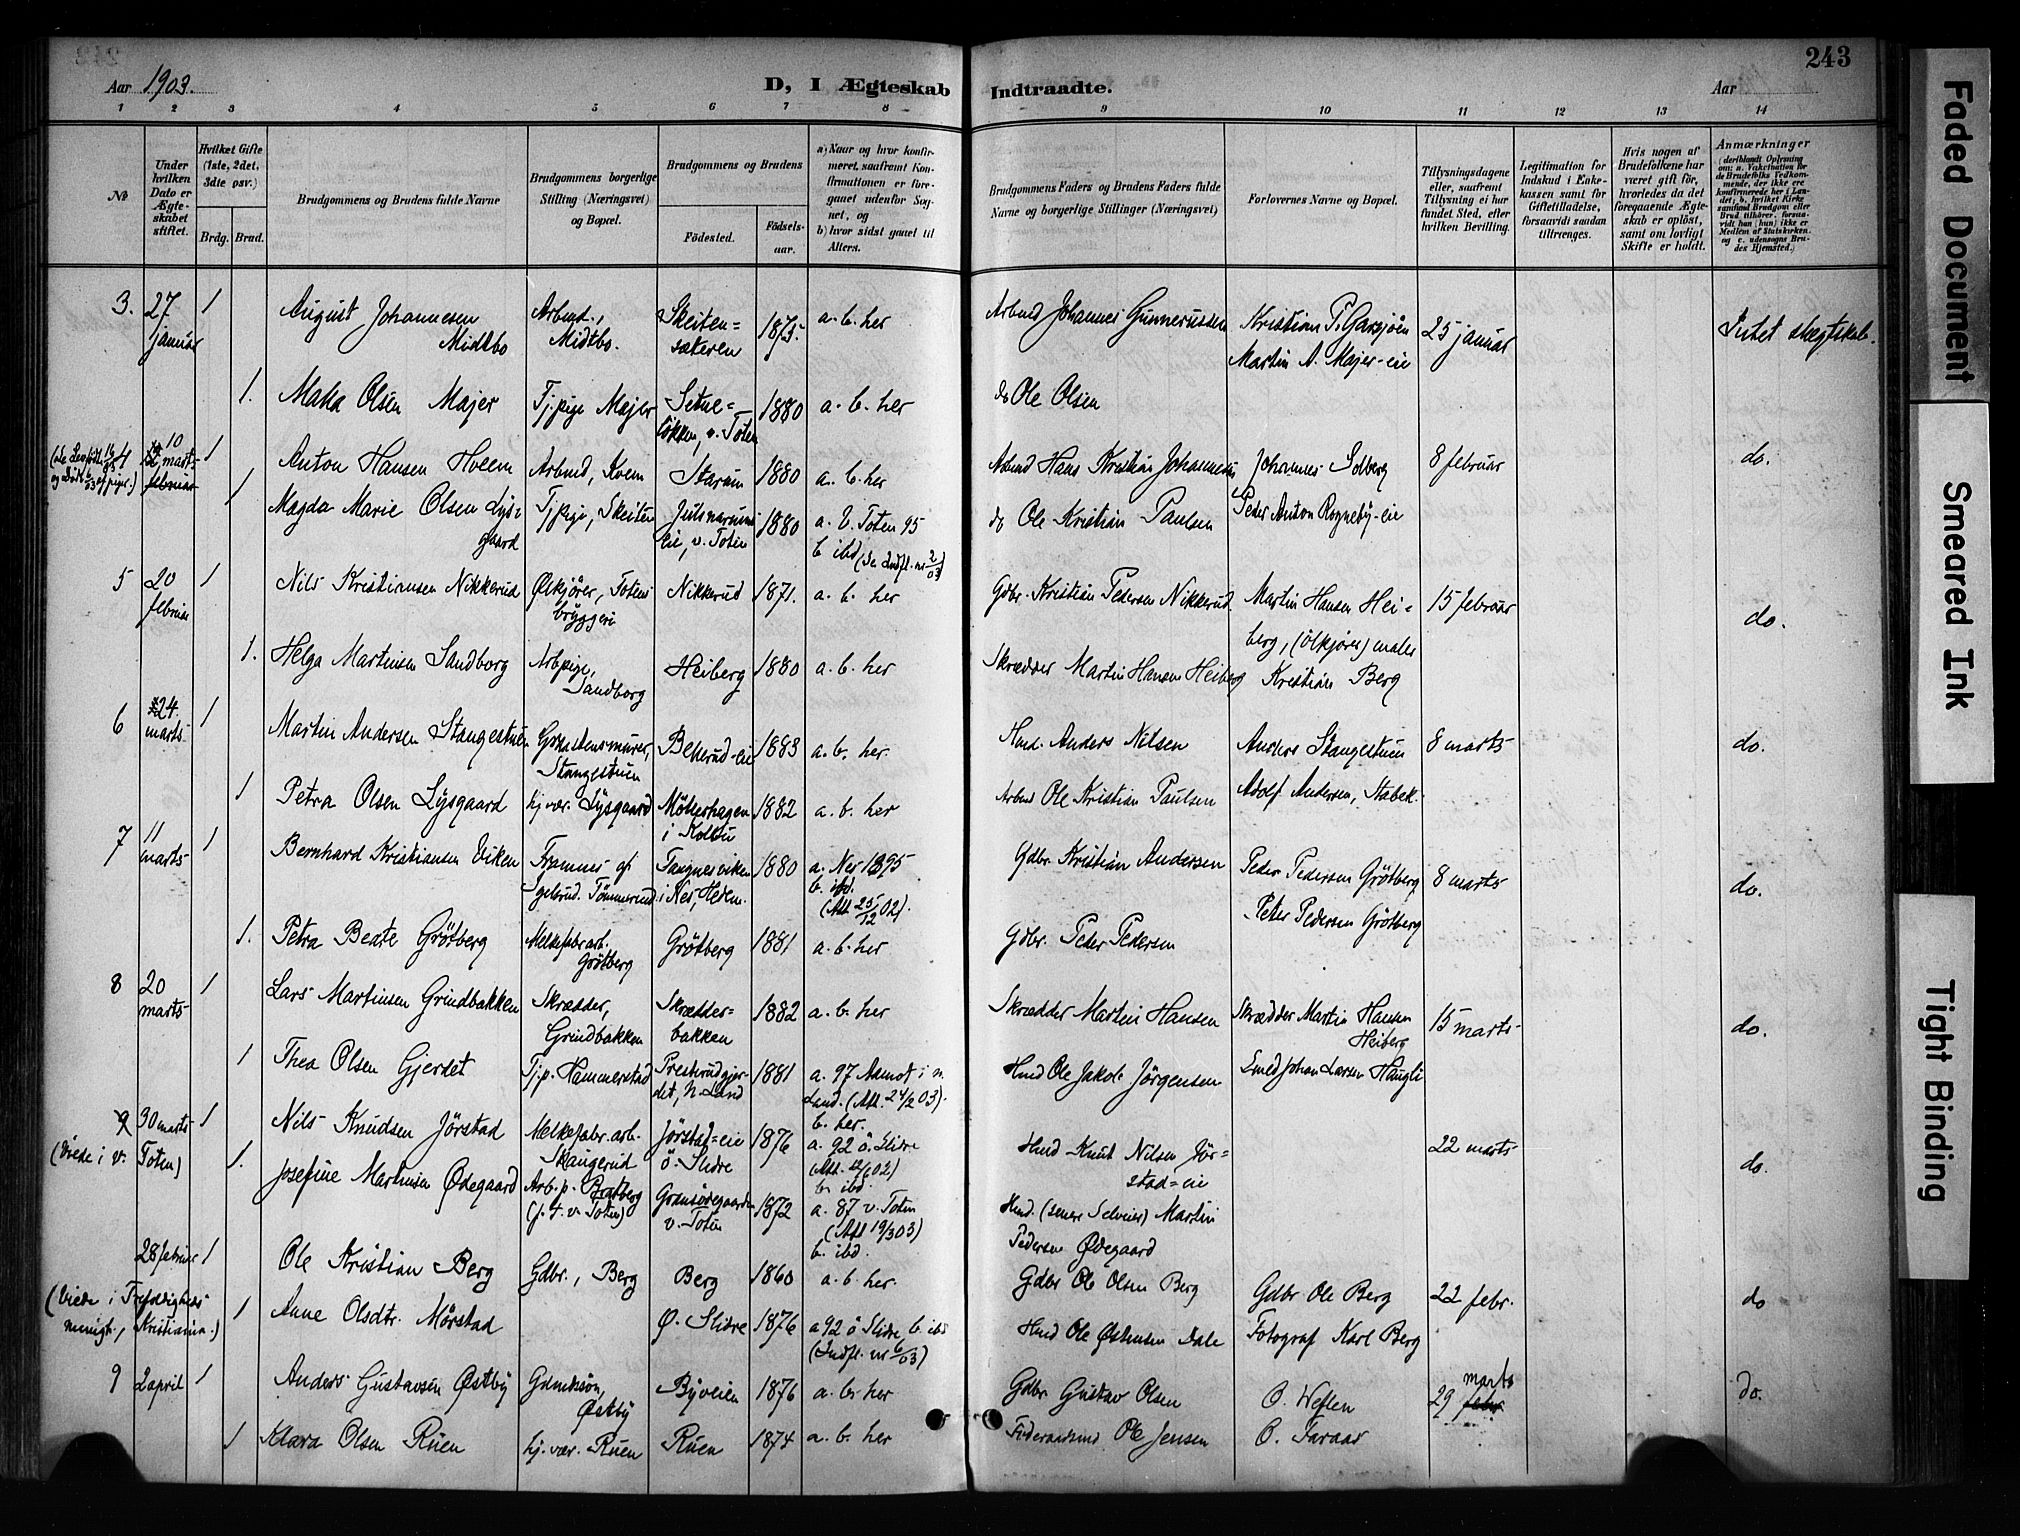 243
Aar 1903.
D, I Ægteskab Indtraadte.
Aar
1 2 3 4 5 6 7 8 9 10 11 12 13 14
№
Under hvilken Dato er Ægteskabet stiftet.
Hvilket Gifte (1ste, 2det, 3die osv.)
Brdg. Brud.
Brudgommens og Brudens fulde Navne
Brudgommens borgerlige Stilling (Næringsvei) og Bopæl.
Brudgommens og Brudens
Fødested. Fødselsaar.
a) Naar og hvor konfirmeret, saafremt Konfirmationen er foregaaet udenfor Sognet, og
b) hvor sidst gaaet til Alters.
Brudgommens Faders og Brudens Faders fulde Navne og borgerlige Stillinger (Næringsvei)
Forlovernes Navne og Bopæl.
Tillysningsdagene eller, saafremt Tillysning ei har fundet Sted, efter hvilken Bevilling.
Legitimation for Indskud i Enkekassen samt for Giftetilladelse, forsaavidt saadan tiltrænges.
Hvis nogen af Brudefolkene har været gift før, hvorledes da det foregaaende Ægteskab er opløst, samt om lovligt Skifte er holdt.
Anmærkninger
3. 27 januar 1 August Johannesen Midtbo Arbmd., Midtbo. Skeitensæteren 1875. a. b. her Arbmd Johannes Gunnerussen Kristian P. Garsjøen Martin A. Majer-eie 25 januar Intet slægtskab.
1. Olsen Majer Tj.pige Majer v. Toten 1880 a. b. her do Ole Olsen
4 10 marts februar 1 Anton Hansen Hveem Arbmd, Kvem Starum 1880 a. b. her Arbmd Hans Kristian Johannesen Johannes Idberg 8 februar do.
1 Magda Marie Olsen Lysgaard Tj.pige, Skeiten eie, v. Toten 1880 a. V. Toten 95 b ibd do Ole Kristian Paulsen Peder Anton Rogneby-eie
5 20 februar 1 Nils Kristiansen Nikkerud Ølkjører, Totens bryggeri Nikkerud 1871. a. b. her Gdbr. Kristian Pedersen Nikkerud Martin Hansen Heiberg, (ølkjører) maler 15 februar do.
1. Helga Martinsen Sandborg Arbpige, Sandborg Heiberg 1880 a. b. her Skrædder Martin Hansen Heiberg Kristian Berg
6 24. marts 1 Martin Andersen Stangestuen Graastensmurer, Stangestuen 1883 a. b. her. Hmd. Anders Nilsen Anders Stangestuen 8 marts do.
1 Petra Olsen Lysgaard hj. vær. Lysgaard Møllerhagen i Kolbu 1882 a. b. her Arbmd Ole Kristian Paulsen Adolf Andersen, Stabek.
7 11 marts 1 Bernhard Kristiansen Viken Tangnesviken i Nes, Hedem. 1880 a. Nes 1895 b. ibd. (Att 25/12 02). Gdbr. Kristian Andersen Peder Pedersen Grøtberg 8 marts do.
1. Petra Beate Grøtberg Melkefabr arb. Grøtberg Grøtberg 1881 a. b. her Gdbr. Peder Pedersen Peter Pedersen Grøtberg
8 20 marts 1 Lars Martinsen Grindbakken Skrædder, Grindbakken Skrædderbakken 1882 a. b. her Skrædder Martin Hansen Skrædder Martin Hansen Heiberg 15 marts do.
1 Thea Olsen Gjerdet Tj.p. Hammerstad Presterudgjerdet, N. Land 1881 a. 97 Aamot i n. Land. (Att. 24/2 03). b. her. Hmd Ole Jakob Jörgensen Smed Johan Larsen Haugli
9 30 marts 1 Nils Knudsen Jørstad Melkefabr. arb. Skaugerud Jørstad=eie ö. Slidre 1876 a. 92 ö. Slidre b. ibd. Hmd Knut Nilsen Jörstad=eie 22 marts do.
(Viede i v. Toten) 1. Josefine Martinsen Ødegaard Arb. p. Bratberg (f. t. v. Toten) v. Toten 1872 a. 87 v. Toten (Att 19/3 03) b. ibd. Hmd. (senere Selveier) Martin Pedersen Ødegaard
28 februar 1 Ole Kristian Berg Gdbr., Berg Berg 1860 a. b. her. Gdbr Ole Olsen Berg Gdbr Ole Berg 22 febr. do
(Viede i Trefoldigheds menigh., Kristiania.) 1 Anne Olsdtr. Mörstad Ø. Slidre 1876 a 92 ö Slidre, b. ibd (Indfl. nr 6/03) Hmd Ole Østensen Dale Fotograf Karl Berg
9 2 april 1 Anders Gustavsen Østby Gdmdssøn, Østby Byveien 1876 a. b. her Gdbr Gustav Olsen O. Weflen 29 marts febr do.
1 Klara Olsen Ruen hj. vær. Ruen Ruen 1874 a. b. her Ole Jensen O. Faraas
Faded Document
Smeared Ink
Tight Binding